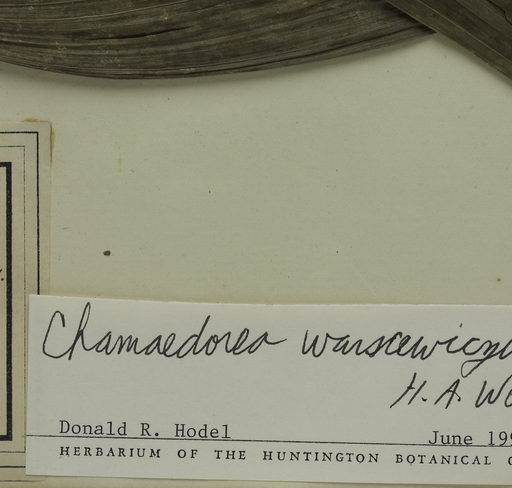 Chamaedorea warscewiczi
H. A. We
Donald R. Hodel June 199
HERBARIUM OF THE HUNTINGTON BOTANICAL